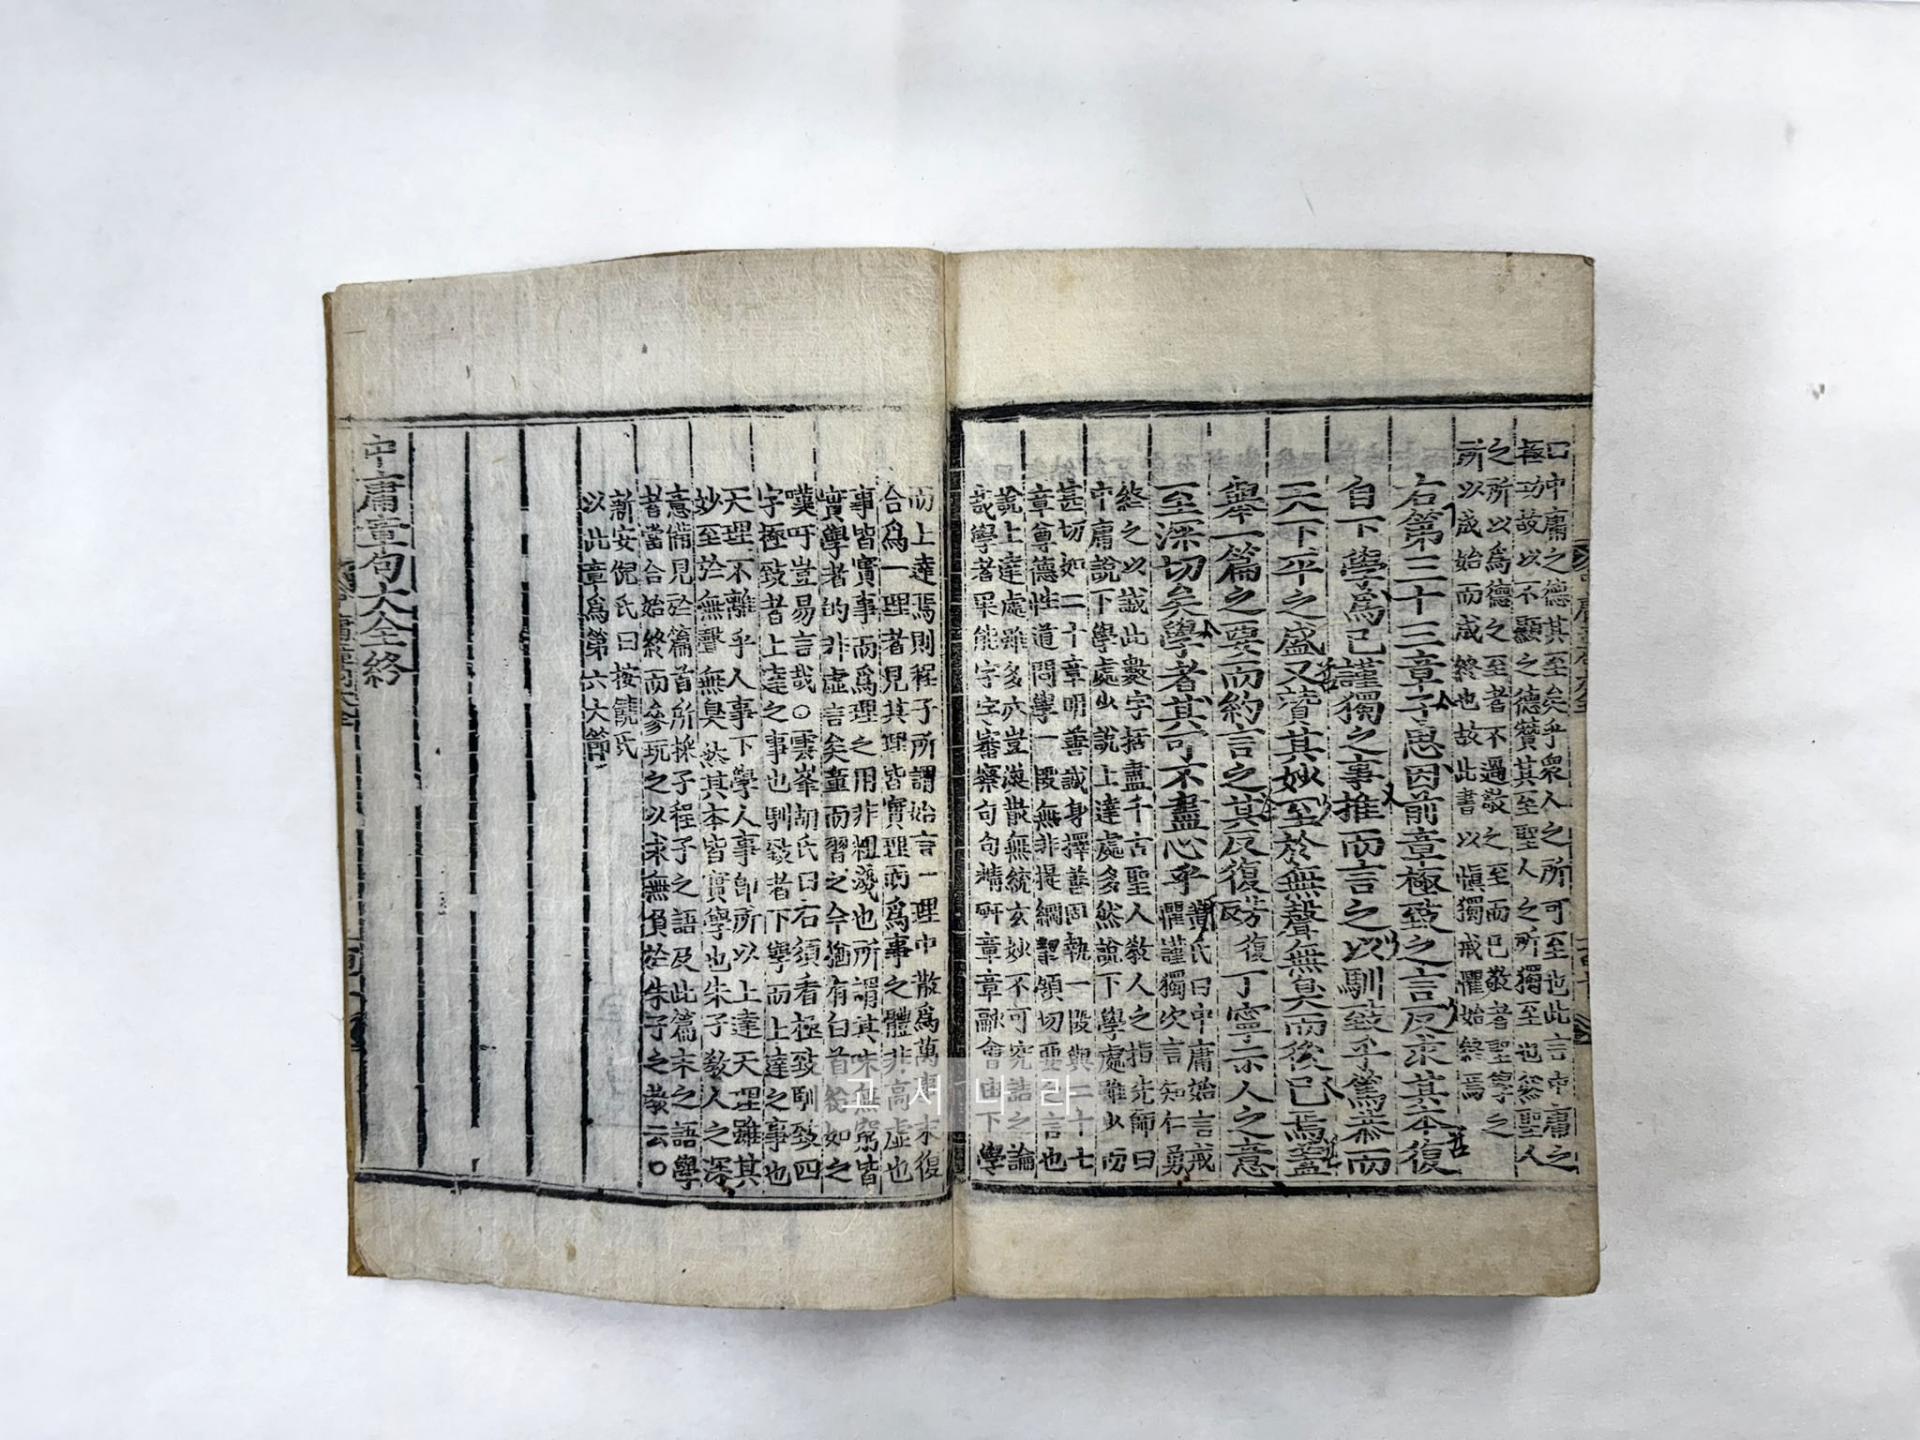 曰中庸之德其至矣乎衆人之所可至也此言中庸之
極功故以不顯之德贊其至聖人之所獨至也然聖人
之所以爲德之至者不過敬之至而已敬者聖學之
所以成始而成終也故此書以愼獨戒懼始終焉
右第三十三章子思因前章極致之言反求其本復
自下學爲己謹獨之事推而言之以馴致乎篤恭而
天下平之盛又贊其妙至於無聲無臭而後已焉蓋
擧一篇之要而約言之其反復丁寧示人之意
至深切矣學者其可不盡心乎
氏曰中庸始言戒
懼謹獨次言知仁勇
終之以誠此數字括盡千古聖人敎人之指先師曰
中庸說下學處少說上達處多然說下學處雖少而
甚切如二十章明善誠身擇善固執一段與二十七
章尊德性道問學一段無非提綱挈領切要之言也
說上達處雖多亦豈渙散無統玄妙不可究詰之論
哉學者果能字字審察句句精硏章章融會由下學
而上達焉則程子所謂始言一理中散爲萬事末復
合爲一理者見其理皆實理而爲事之體非高虛也
事皆實事而爲理之用非粗淺也所謂其味無窮皆
實學者的非虛言矣童而習之今猶有白首紛如之
嘆吁豈易言哉○雲峯胡氏曰右須看極致馴致四
字極致者上達之事也馴致者下學而上達之事也
天理不離乎人事下學人事卽所以上達天理雖其
妙至於無聲無臭然其本皆實學也朱子敎人之深
意備見於篇首所採子程子之語及此篇末之語學
者當合始終而參玩之以求無負於朱子之敎云○
新安倪氏曰按饒氏
以此章爲第六大節
中庸章句大全終
고서나라